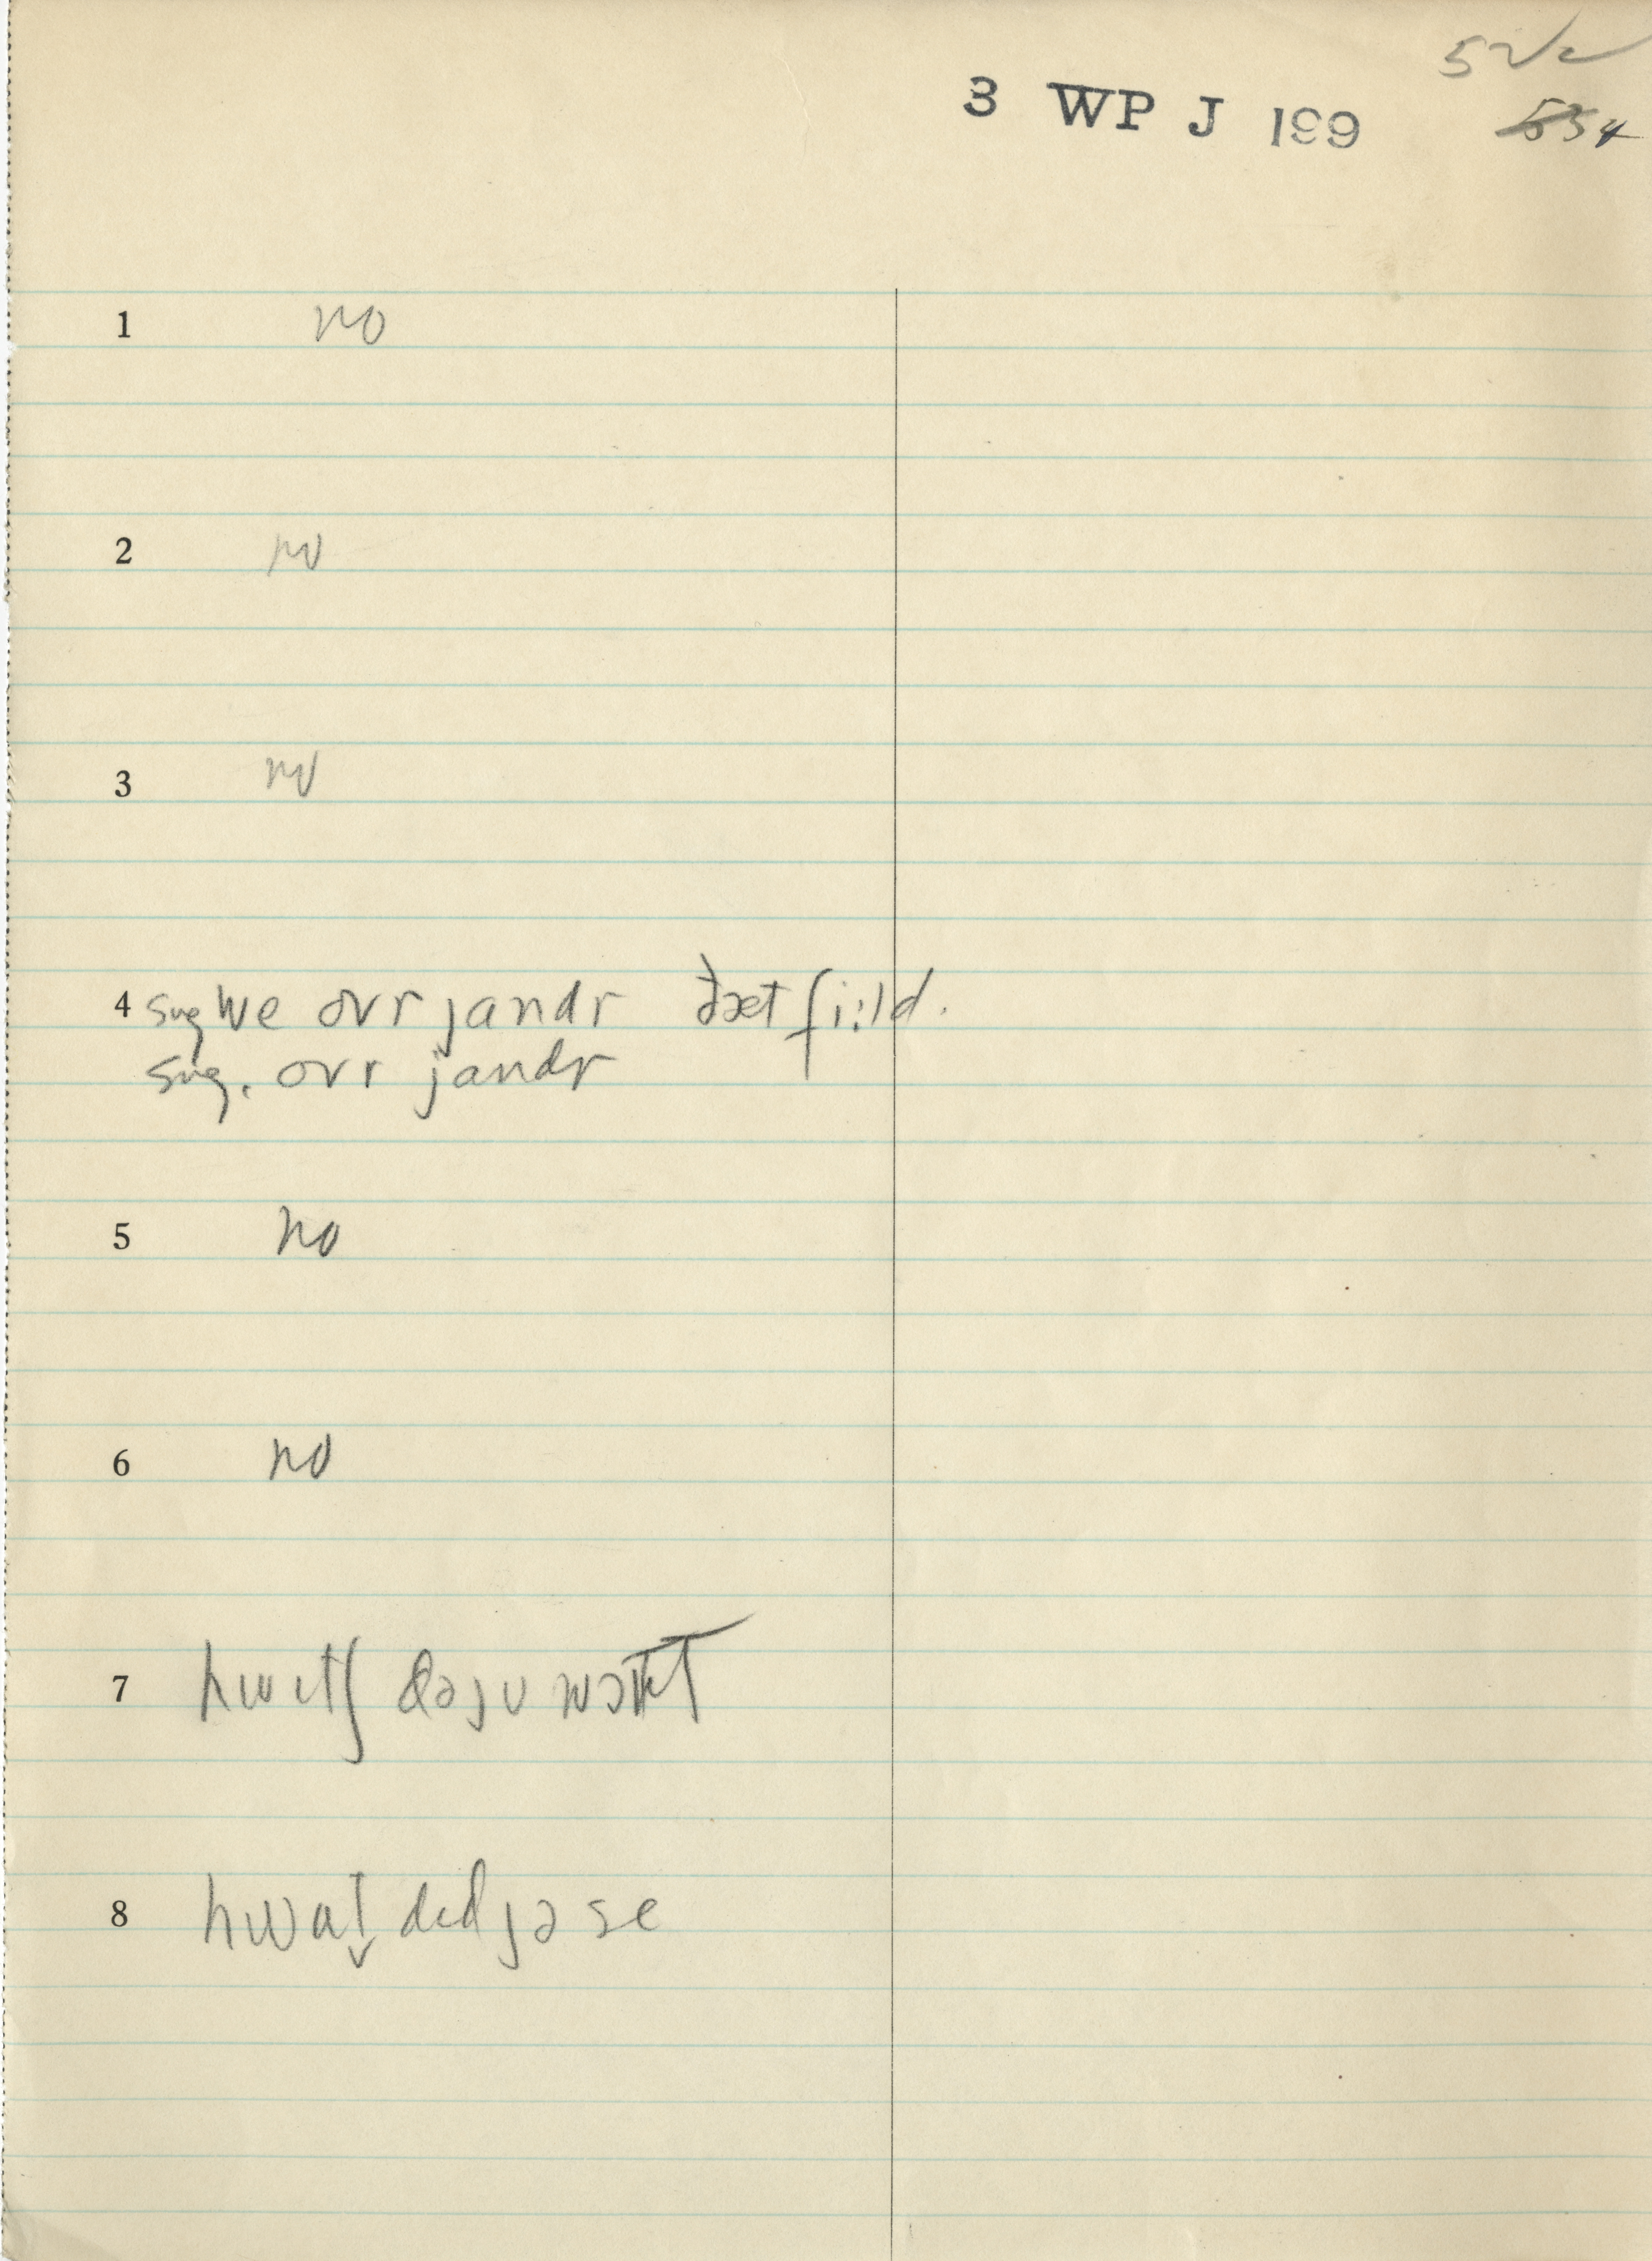 52
3 WP J 199
554
1 no
2 no
3 no
4 sug we ovr jandr ðæt fi:ld.
sug. ovr jandr
5 no
6 no
7 hwɪtʃ dəju wɔnt
8 hwat̬ dɪdjə se